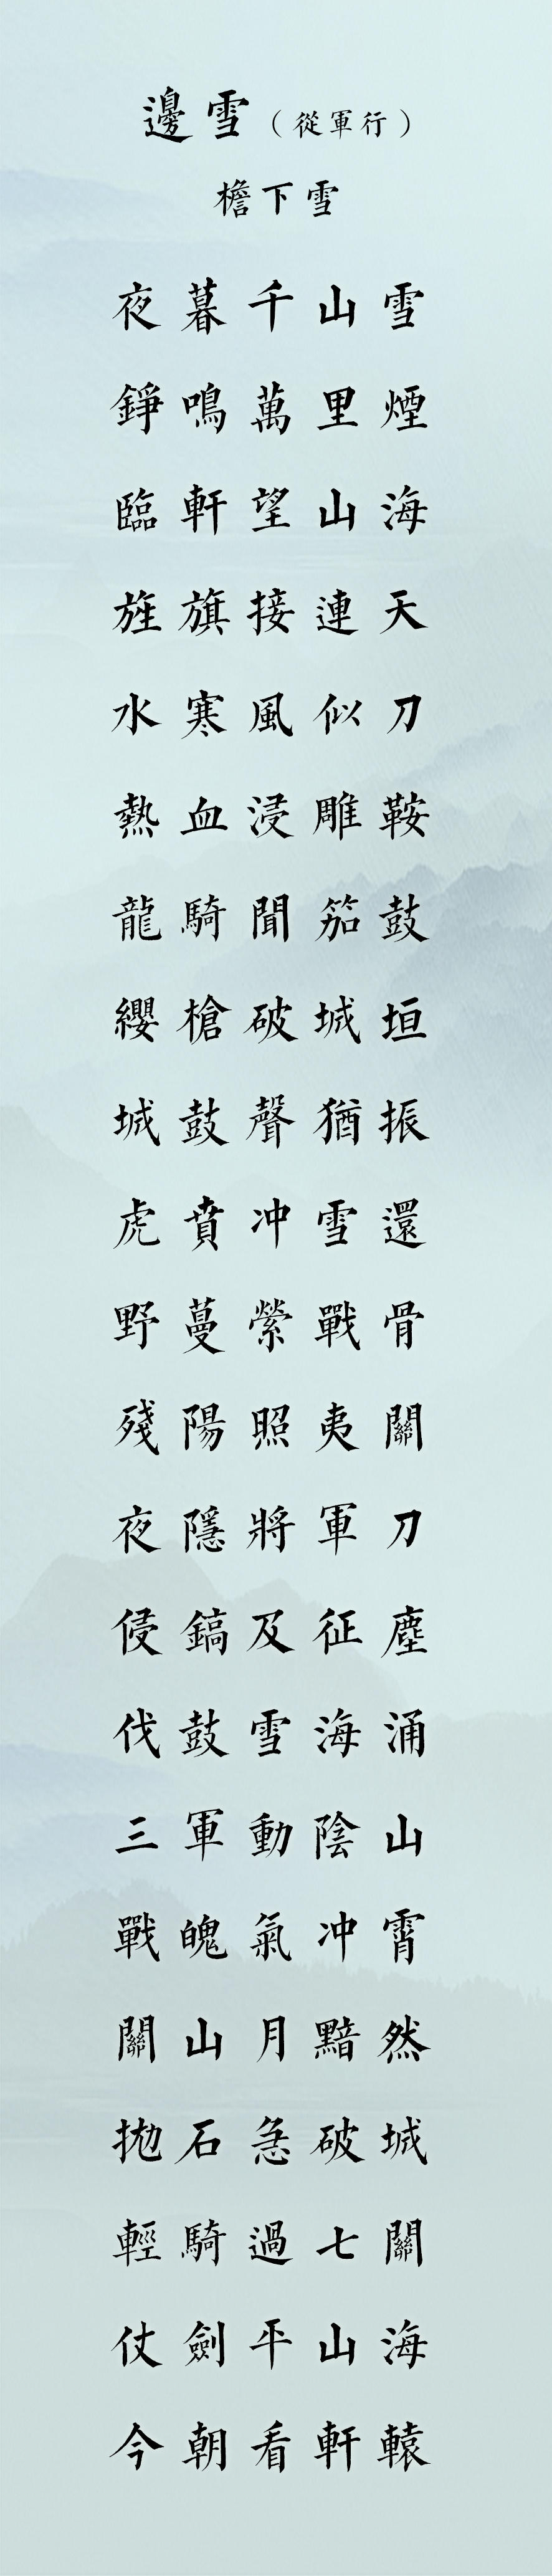 邊雪（從軍行）
檐下雪
夜暮千山雪
錚鳴萬里煙
臨軒望山海
旌旗接連天
水寒風似刀
熱血浸雕鞍
龍騎聞笳鼓
纓槍破城垣
城鼓聲猶振
虎賁冲雪還
野蔓縈戰骨
殘陽照夷關
夜隱將軍刀
侵鎬及征塵
伐鼓雪海涌
三軍動陰山
戰魄氣冲霄
關山月黯然
拋石急破城
輕騎過七關
仗劍平山海
今朝看軒轅